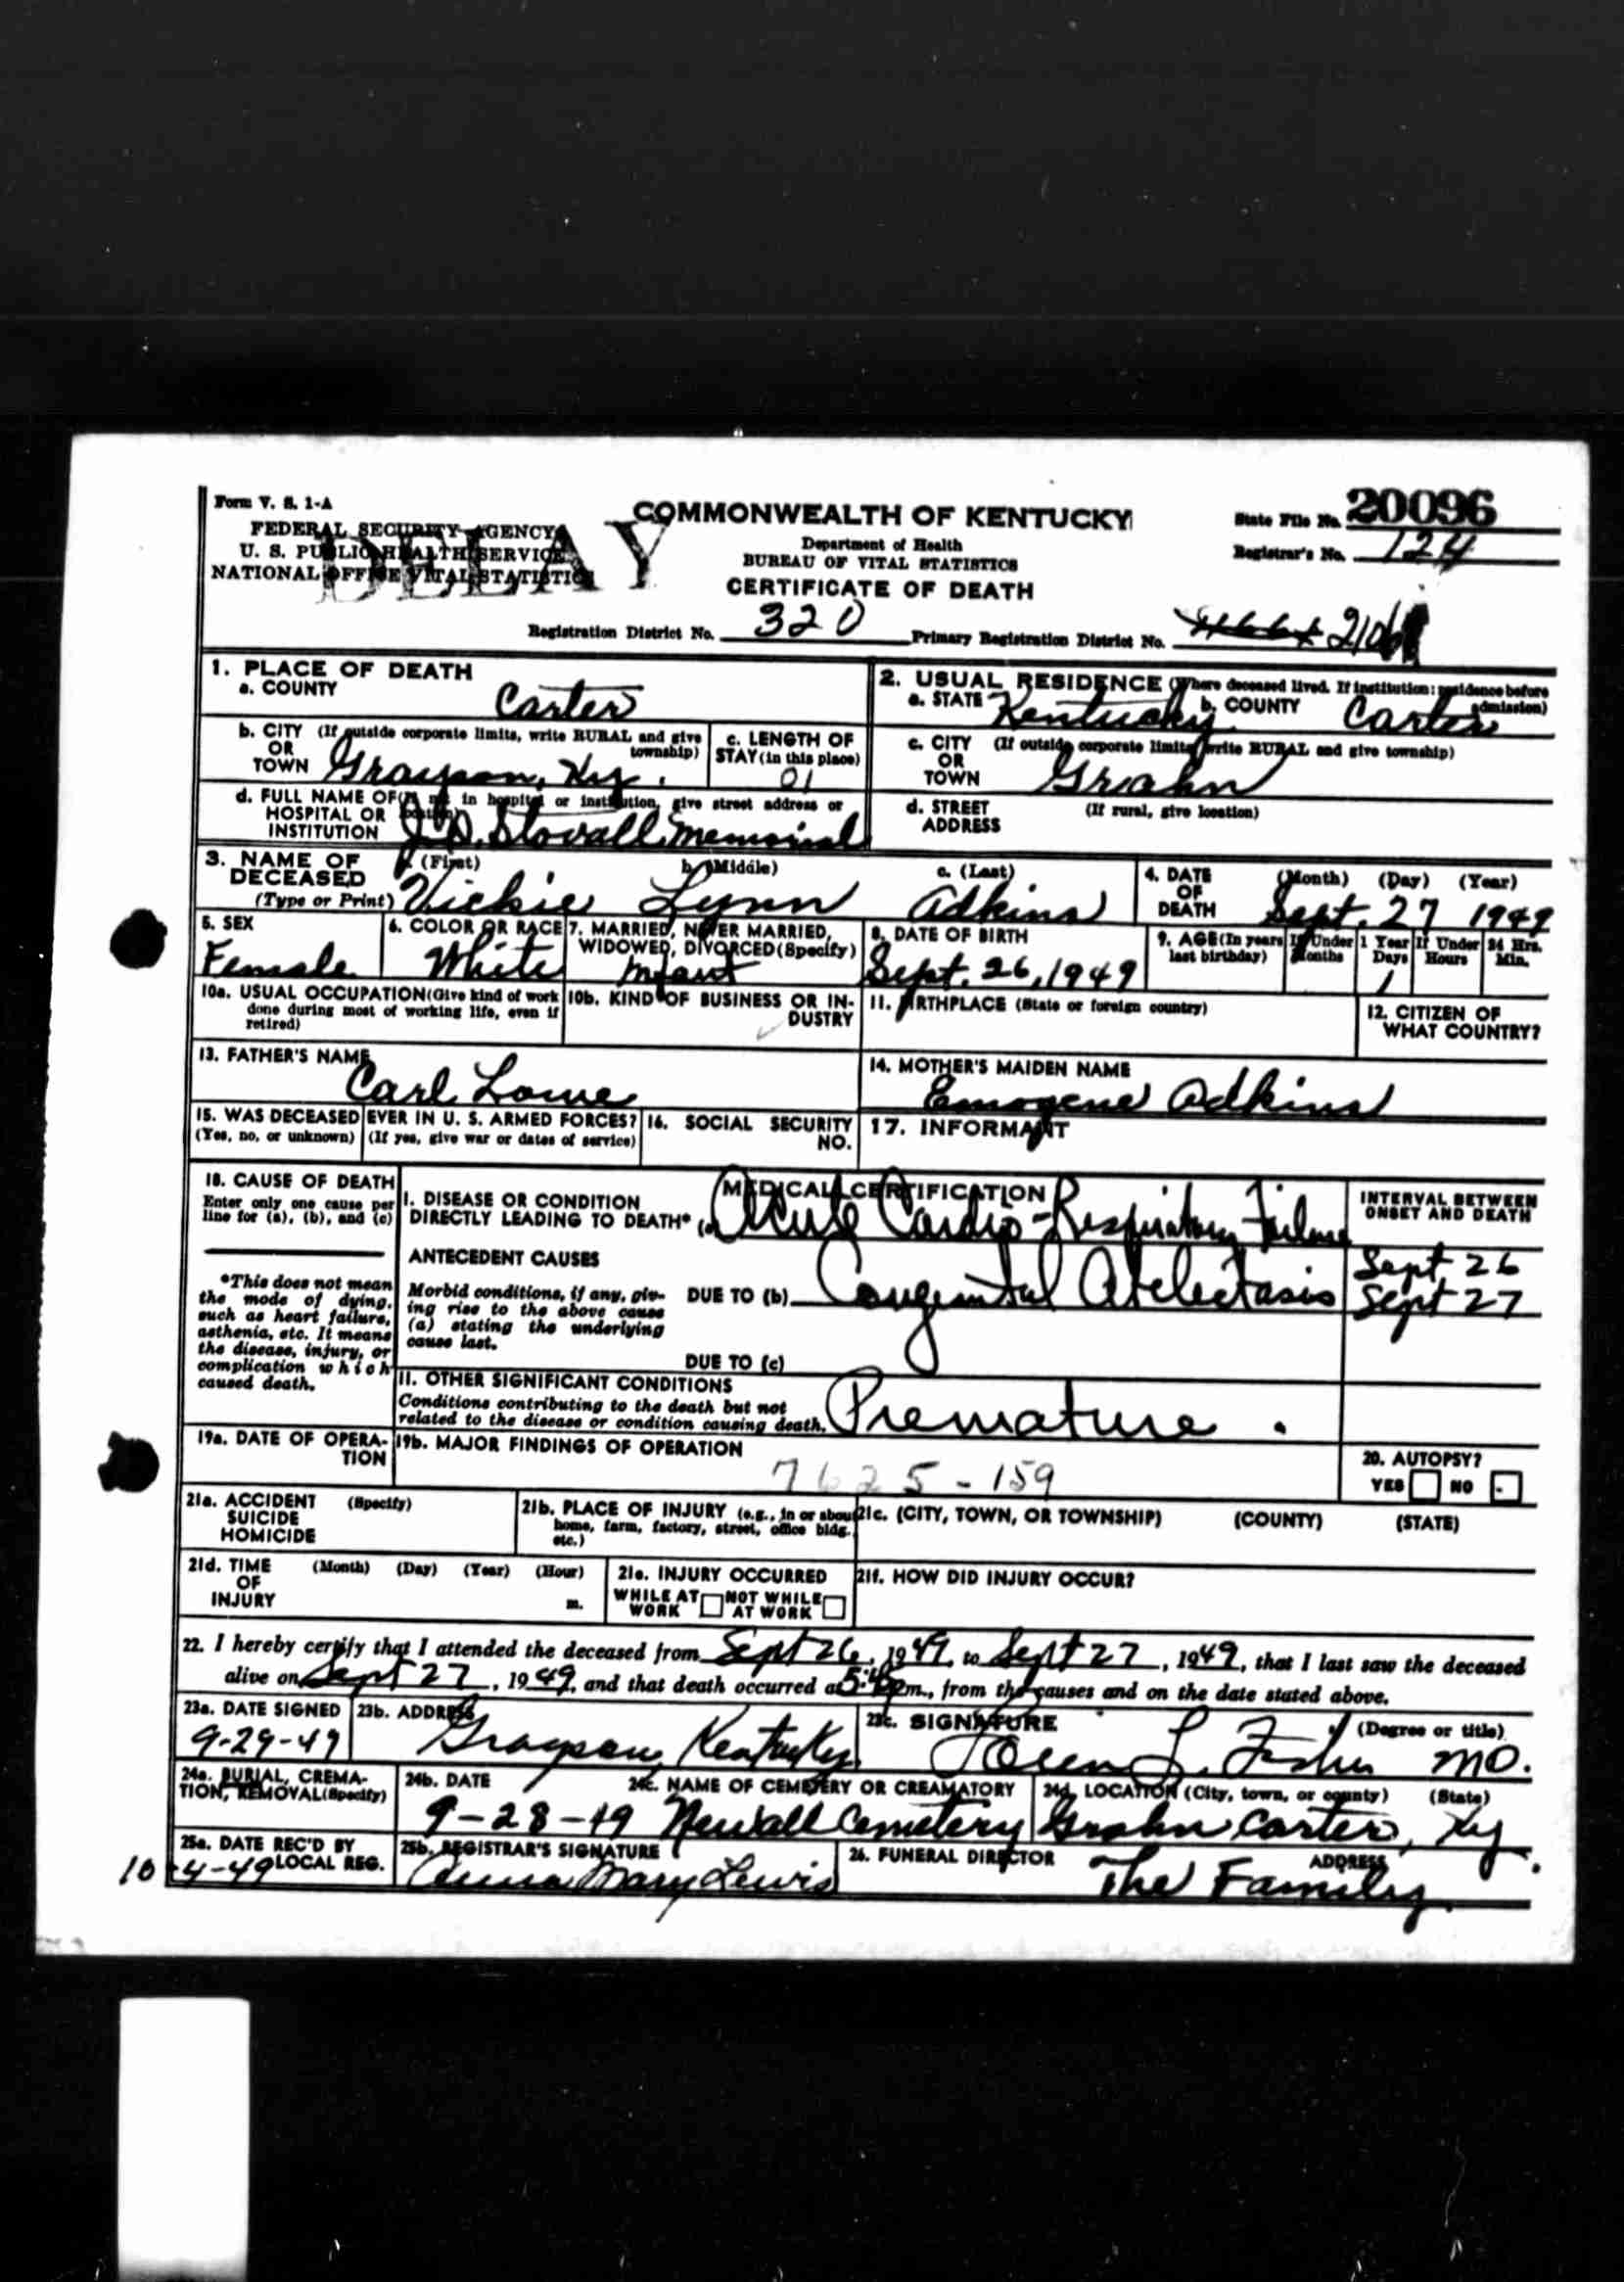 Form V. S. 1-A
FEDERAL SECURITY AGENCY
U. S. PUBLIC HEALTH SERVICE
NATIONAL OFFICE VITAL STATISTICS
DELAY
COMMONWEALTH OF KENTUCKY
Department of Health
BUREAU OF VITAL STATISTICS
CERTIFICATE OF DEATH
State File No. 20096
Registrar's No. 124
Registration District No. 320
Primary Registration District No. 2106
1. PLACE OF DEATH
a. COUNTY Carter
b. CITY (If outside corporate limits, write RURAL and give township)
OR TOWN Grayson, Ky.
c. LENGTH OF STAY (in this place) 01
d. FULL NAME OF (If not in hospital or institution, give street address or location)
HOSPITAL OR INSTITUTION J.Q. Stovall Memorial
2. USUAL RESIDENCE (Where deceased lived. If institution: residence before admission)
a. STATE Kentucky b. COUNTY Carter
c. CITY (If outside corporate limits, write RURAL and give township)
OR TOWN Grahn
d. STREET ADDRESS (If rural, give location)
3. NAME OF DECEASED (Type or Print)
a. (First) Vickie b. (Middle) Lynn c. (Last) Adkins
4. DATE OF DEATH (Month) (Day) (Year)
Sept. 27 1949
5. SEX Female
6. COLOR OR RACE White
7. MARRIED, NEVER MARRIED, WIDOWED, DIVORCED (Specify) Infant
8. DATE OF BIRTH Sept. 26, 1949
9. AGE (In years last birthday) If Under 1 Year Months Days 1 If Under 24 Hrs. Hours Min.
10a. USUAL OCCUPATION (Give kind of work done during most of working life, even if retired)
10b. KIND OF BUSINESS OR INDUSTRY
11. BIRTHPLACE (State or foreign country)
12. CITIZEN OF WHAT COUNTRY?
13. FATHER'S NAME Carl Lowe
14. MOTHER'S MAIDEN NAME Emogene Adkins
15. WAS DECEASED EVER IN U. S. ARMED FORCES?
(Yes, no, or unknown) (If yes, give war or dates of service)
16. SOCIAL SECURITY NO.
17. INFORMANT
18. CAUSE OF DEATH
Enter only one cause per line for (a), (b), and (c)
*This does not mean the mode of dying, such as heart failure, asthenia, etc. It means the disease, injury, or complication which caused death.
MEDICAL CERTIFICATION
I. DISEASE OR CONDITION DIRECTLY LEADING TO DEATH* (a) Acute Cardio-Respiratory Failure
ANTECEDENT CAUSES
Morbid conditions, if any, giving rise to the above cause (a) stating the underlying cause last.
DUE TO (b) Congenital Atelectasis
DUE TO (c)
INTERVAL BETWEEN ONSET AND DEATH
Sept 26
Sept 27
II. OTHER SIGNIFICANT CONDITIONS
Conditions contributing to the death but not related to the disease or condition causing death. Premature.
19a. DATE OF OPERATION
19b. MAJOR FINDINGS OF OPERATION
7625-159
20. AUTOPSY?
YES NO
21a. ACCIDENT SUICIDE HOMICIDE (Specify)
21b. PLACE OF INJURY (e.g., in or about home, farm, factory, street, office bldg. etc.)
21c. (CITY, TOWN, OR TOWNSHIP) (COUNTY) (STATE)
21d. TIME OF INJURY (Month) (Day) (Year) (Hour) m.
21e. INJURY OCCURRED
WHILE AT WORK NOT WHILE AT WORK
21f. HOW DID INJURY OCCUR?
22. I hereby certify that I attended the deceased from Sept 26, 1949, to Sept 27, 1949, that I last saw the deceased
alive on Sept 27, 1949, and that death occurred at m., from the causes and on the date stated above.
23a. DATE SIGNED 9-29-49
23b. ADDRESS Grayson, Kentucky
23c. SIGNATURE (Degree or title)
L. MD.
24a. BURIAL, CREMATION, REMOVAL (Specify)
24b. DATE 9-28-49
24c. NAME OF CEMETERY OR CREAMATORY Newall Cemetery
24d. LOCATION (City, town, or county) (State)
Grahn Carter, Ky.
25a. DATE REC'D BY LOCAL REG. 10-4-49
25b. REGISTRAR'S SIGNATURE Anna Mary Lewis
26. FUNERAL DIRECTOR ADDRESS
The Family.